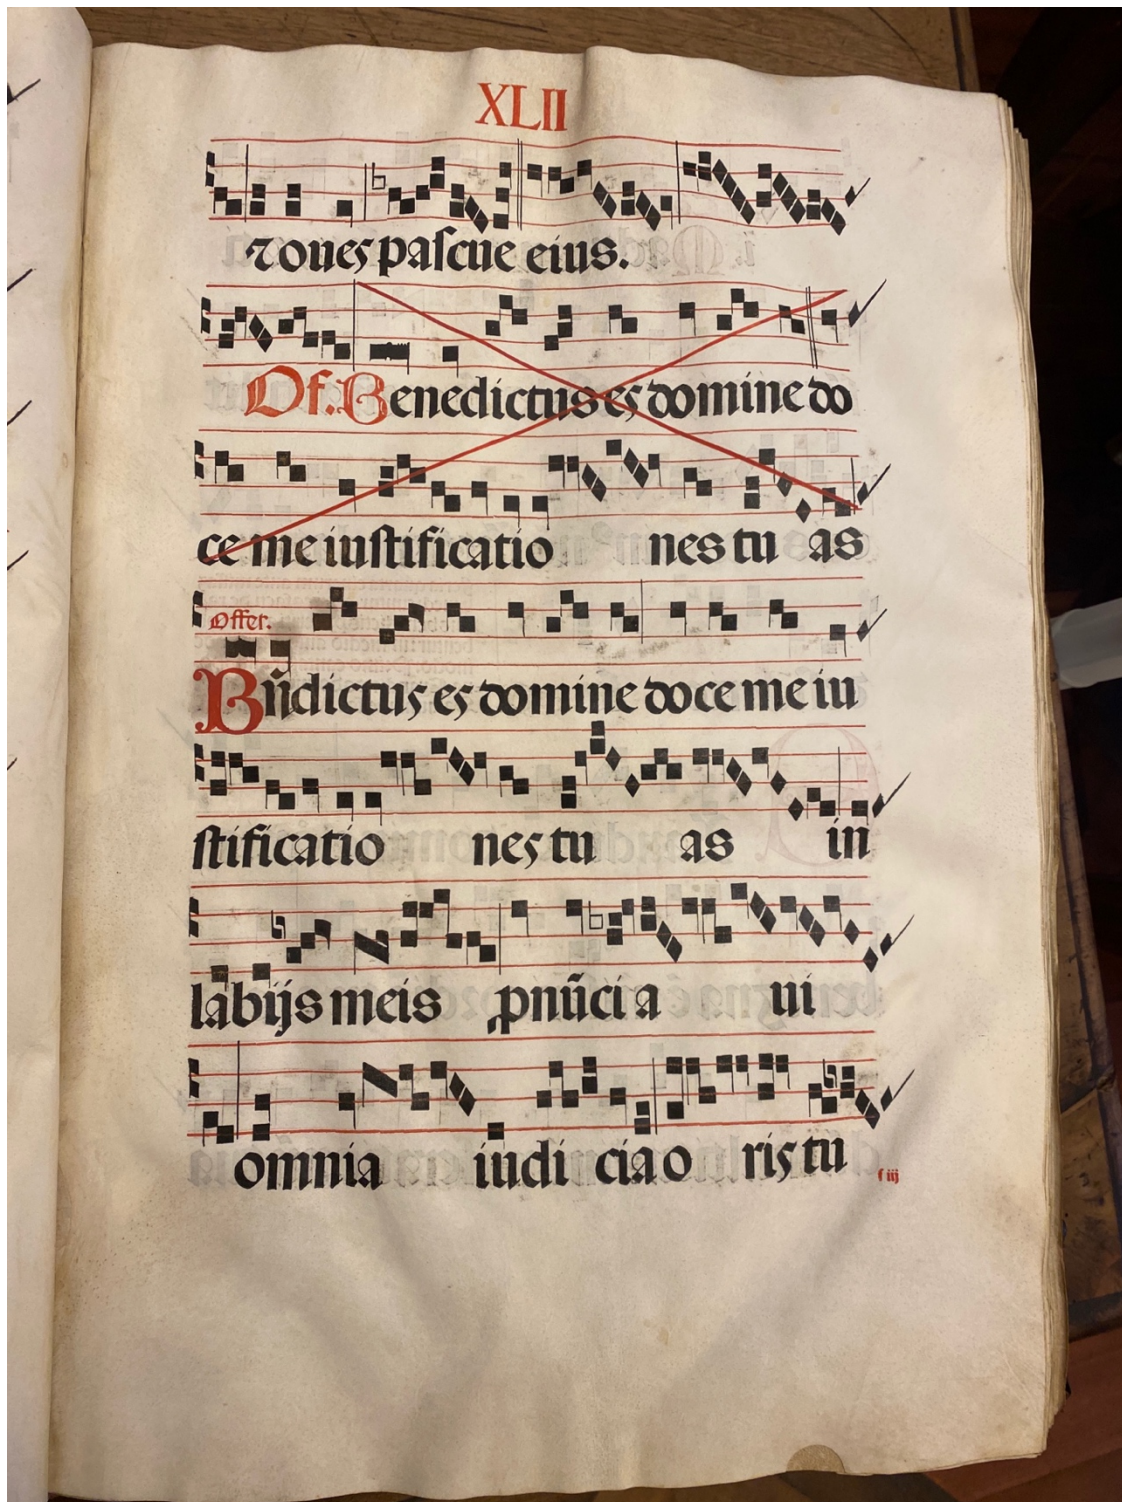 XLII
τoues paſcue eius.
Of. Benedictus es domine do
ce me iuſtificatio nes tu as
Offer.
Bn̄dictus es domine doce me iu
ſtificatio nes tu as in
labijs meis ꝓnūci a ui
omnia iudi cia o ris tu
f iij